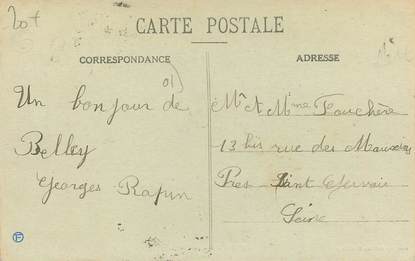 20f
CARTE POSTALE
CORRESPONDANCE
ADRESSE
(01)
Un bonjour de
Belley
Georges Rapin
Mr et Mme Fouchère
13 bis rue des
Pres Saint Gervais
Seine
F